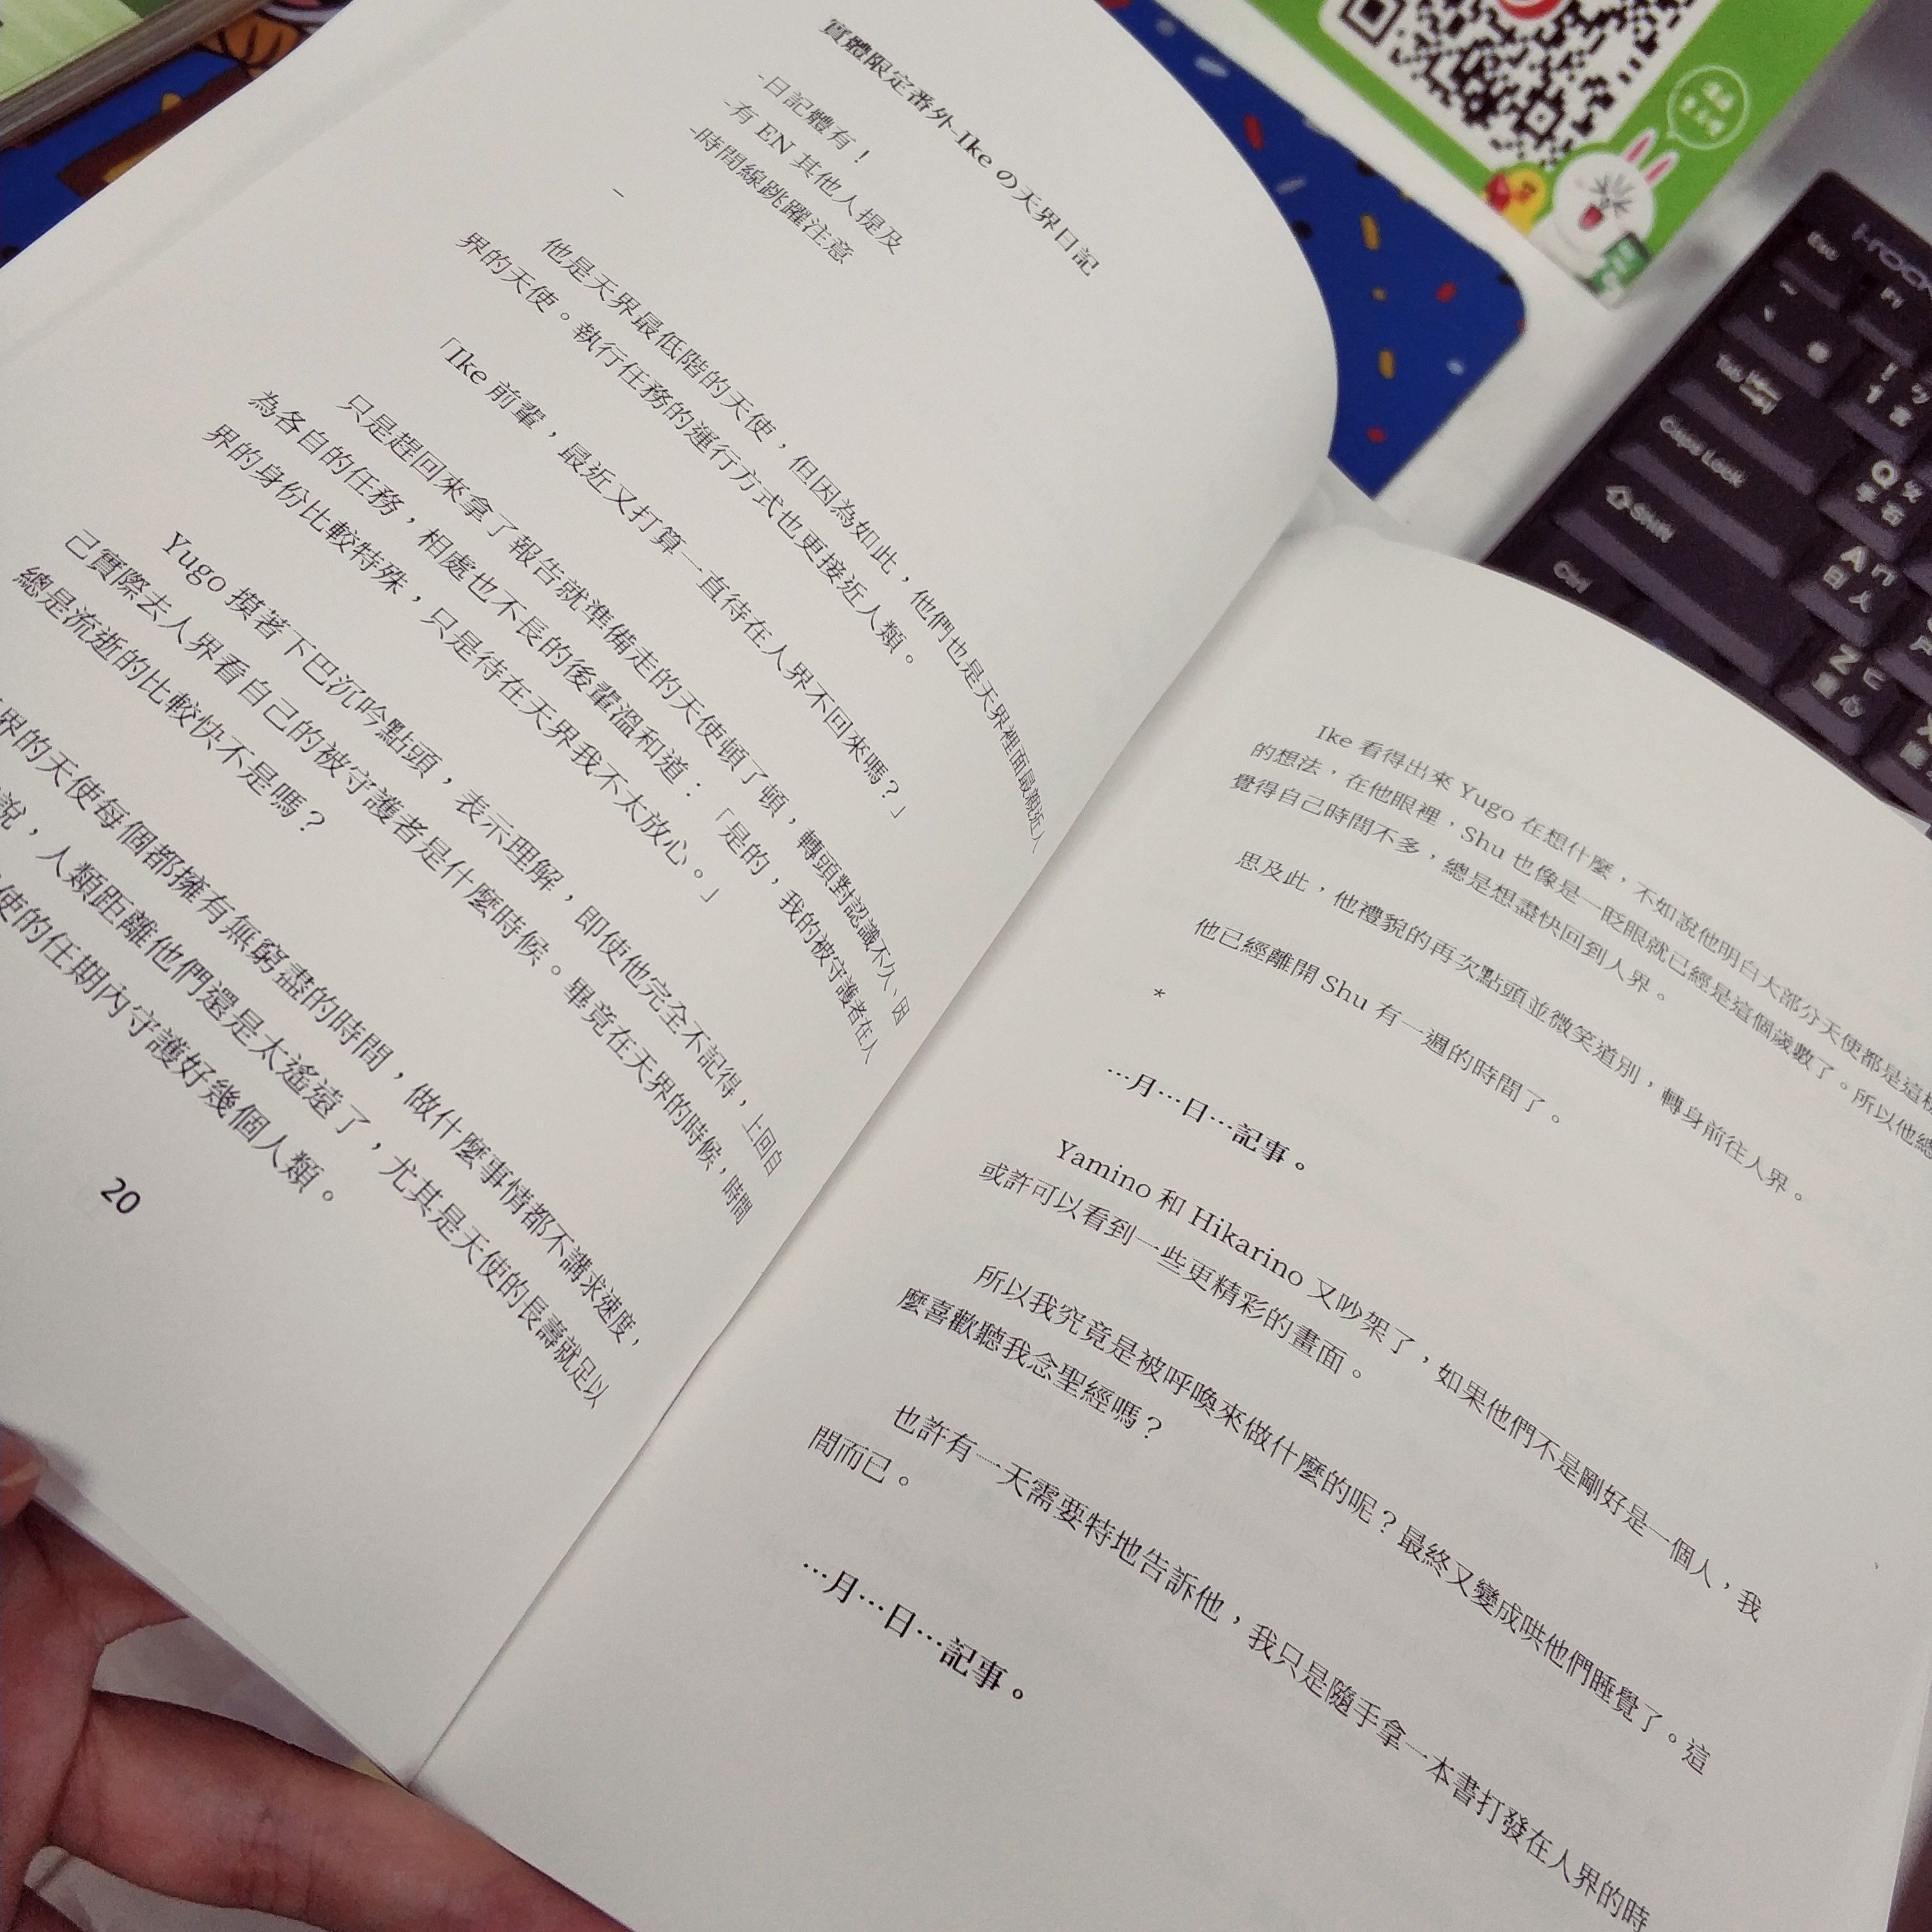 實體限定番外-Ike の天界日記
-日記體有！
-有 EN 其他人提及
-時間線跳躍注意
–
他是天界最低階的天使，但因為如此，他們也是天界裡面最親近人
界的天使。執行任務的運行方式也更接近人類。
「Ike 前輩，最近又打算一直待在人界不回來嗎？」
只是趕回來拿了報告就準備走的天使頓了頓，轉頭對認識不久、因
為各自的任務，相處也不長的後輩溫和道：「是的，我的被守護者在人
界的身份比較特殊，只是待在天界我不太放心。」
Yugo 摸著下巴沉吟點頭，表示理解，即使他完全不記得，上回自
己實際去人界看自己的被守護者是什麼時候。畢竟在天界的時候，時間
總是流逝的比較快不是嗎？
界的天使每個都擁有無窮盡的時間，做什麼事情都不講求速度，
說，人類距離他們還是太遙遠了，尤其是天使的長壽就足以
使的任期內守護好幾個人類。
20
Ike 看得出來 Yugo 在想什麼，不如說他明白大部分天使都是這樣
的想法，在他眼裡，Shu 也像是一眨眼就已經是這個歲數了。所以他總
覺得自己時間不多，總是想盡快回到人界。
思及此，他禮貌的再次點頭並微笑道別，轉身前往人界。
他已經離開 Shu 有一週的時間了。
*
…月…日…記事。
Yamino 和 Hikarino 又吵架了，如果他們不是剛好是一個人，我
或許可以看到一些更精彩的畫面。
所以我究竟是被呼喚來做什麼的呢？最終又變成哄他們睡覺了。這
麼喜歡聽我念聖經嗎？
也許有一天需要特地告訴他，我只是隨手拿一本書打發在人界的時
間而已。
…月…日…記事。
i-rock
Esc
F1
~
、
!
1
Tab
Q
手
Caps Lock
A
日
人
Shift
Z
重
Ctrl